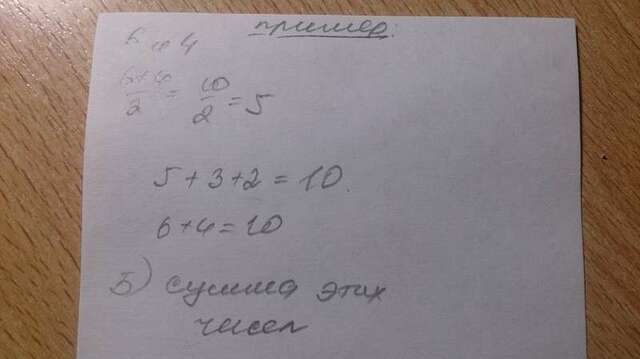 пример:
6 и 4
6+4/2 = 10/2 = 5
5+3+2=10.
6+4=10
Б) сумма этих
чисел